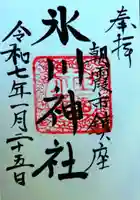 奉拝
朝霞市鎮座
氷川神社
令和七年一月二十五日